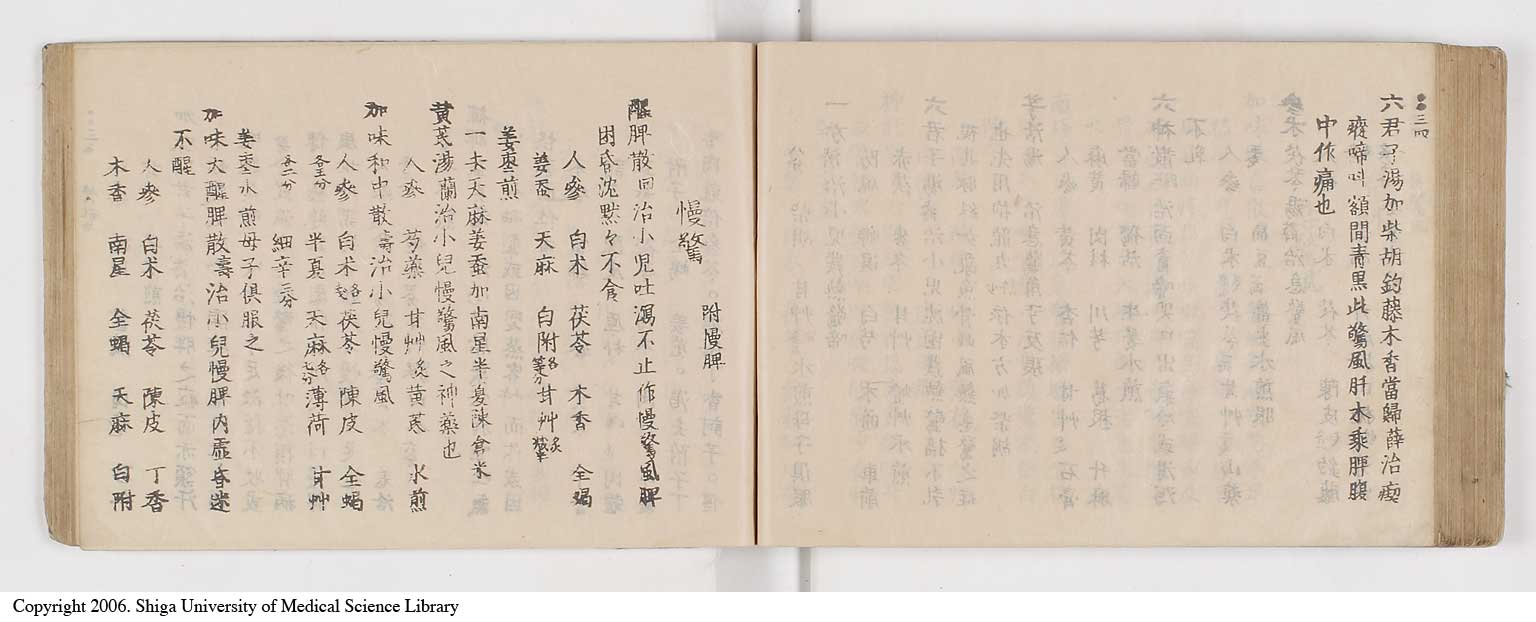 三四
六君子湯加柴胡釣藤木香當歸薛治瘈
瘲啼呌額間青黑此驚風肝木乘脾腹
中作痛也
慢驚 附慢脾
醒脾散回治小児吐瀉不止作慢驚風脾
困昏沈黙々不食
人參 白朮 茯苓 木香 全蝎
姜蚕 天麻 白附各等分 甘艸炙
姜棗煎
一方去天麻姜蚕加南星半夏陳倉米
黄芪湯蘭治小兒慢驚風之神藥也
人參 芍藥 甘艸炙 黄芪 水煎
加味和中散壽治小兒慢驚風
人參 白朮 茯苓 陳皮 全蝎
各五分 半夏 天麻各七分 薄荷 甘艸
各二分 細辛三分
姜棗水煎母子俱服之
加味大醒脾散壽治小兒慢脾内虚昏迷
不醒
人參 白朮 茯苓 陳皮 丁香
木香 南星 全蝎 天麻 白附
Copyright 2006. Shiga University of Medical Science Library